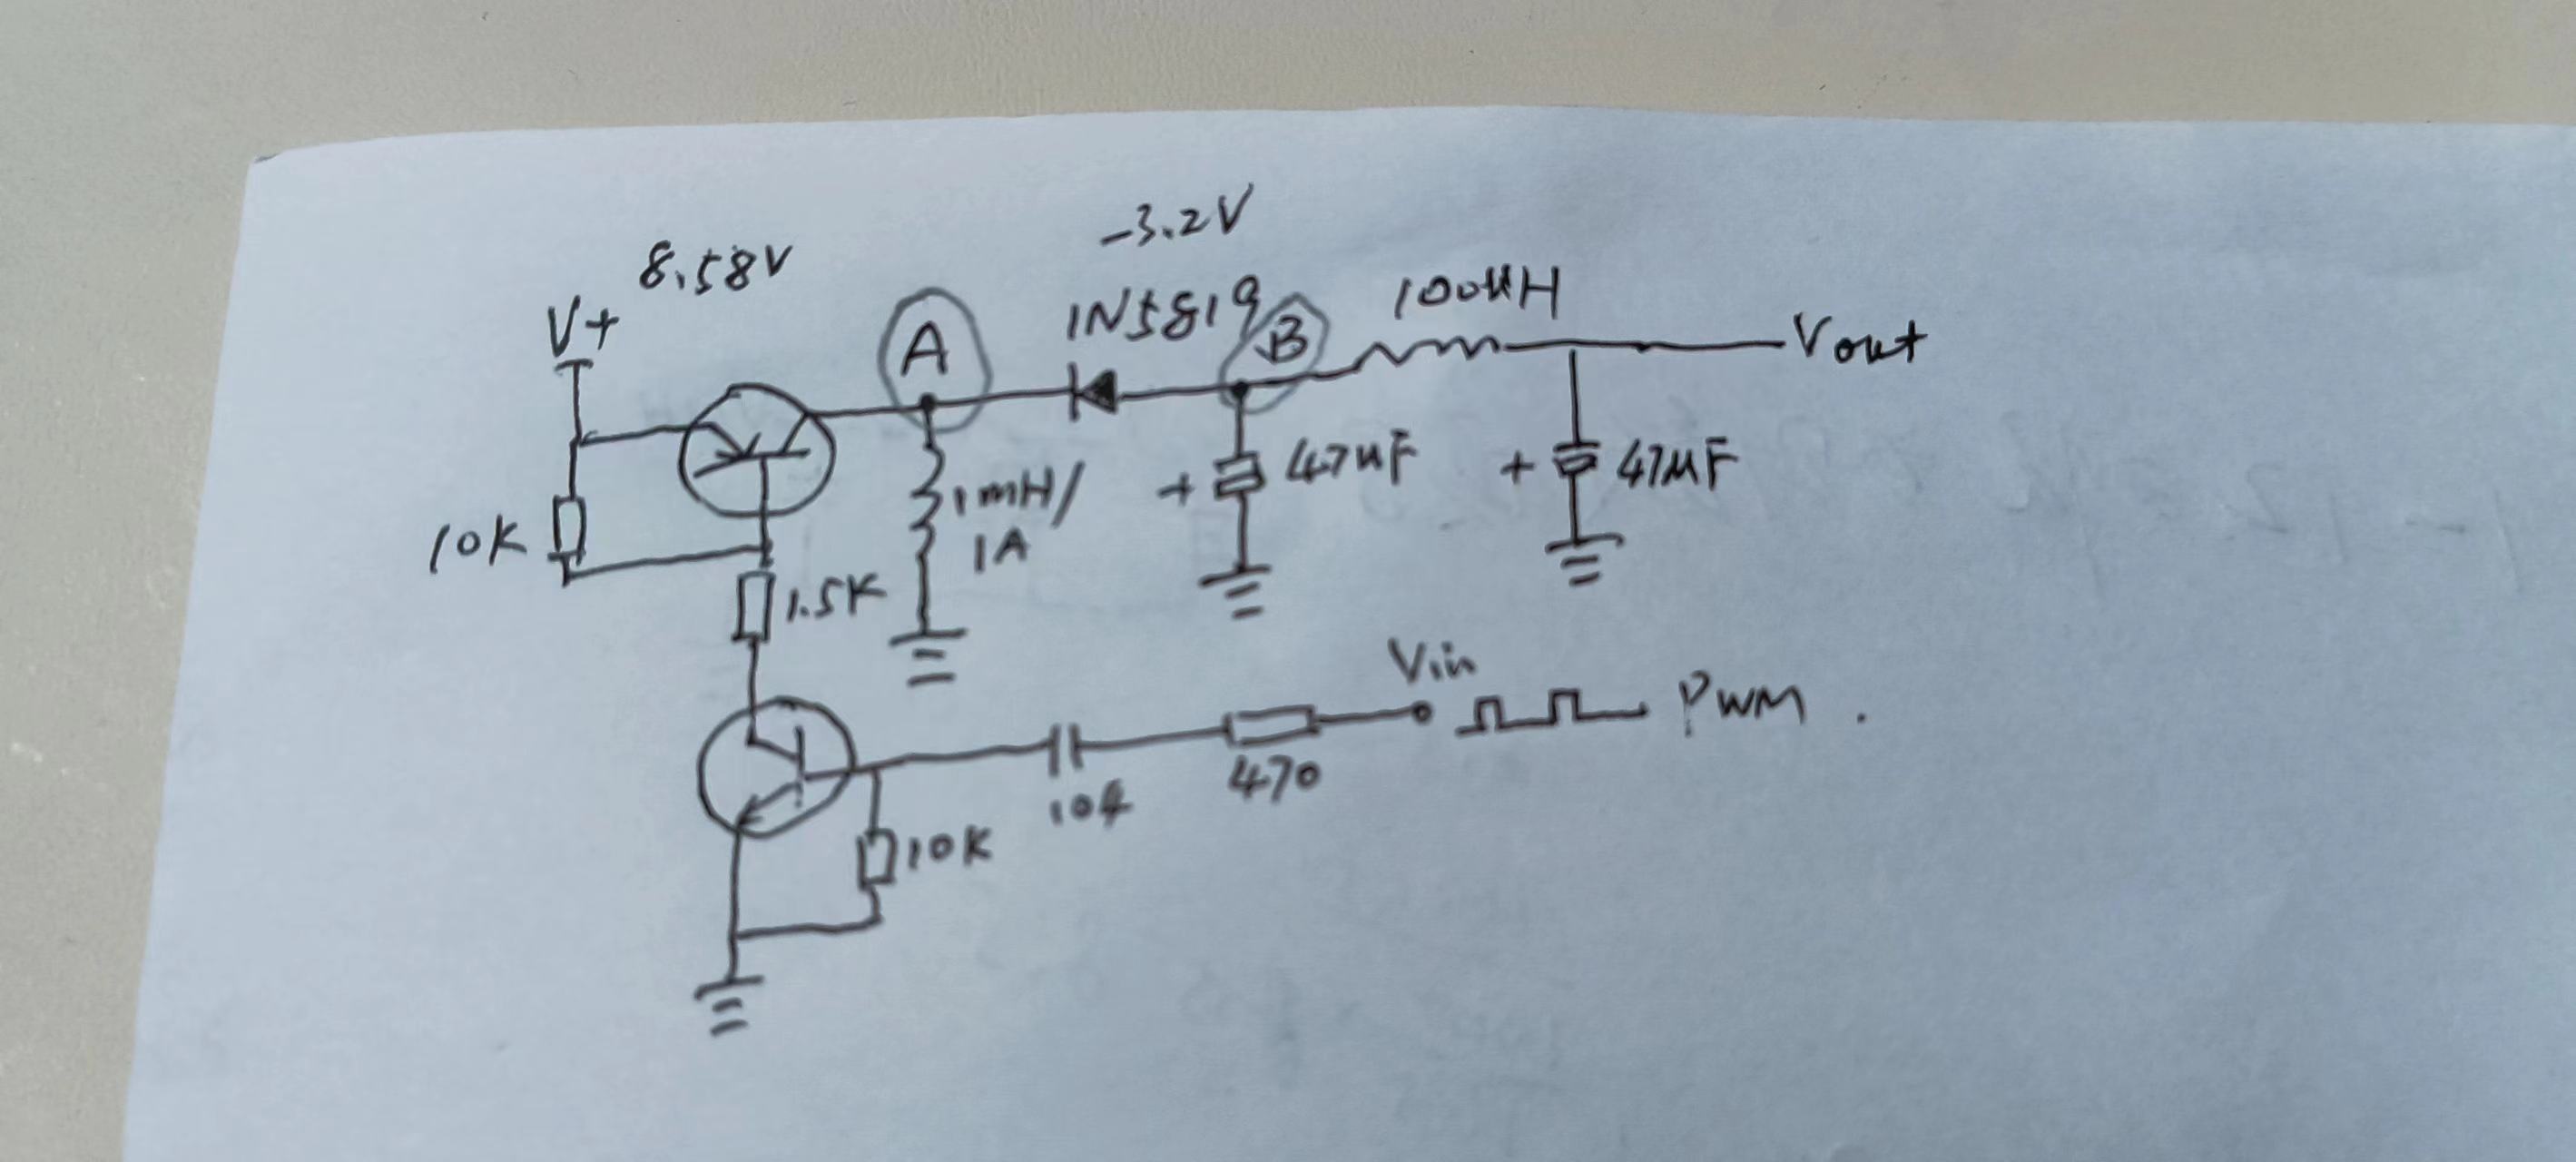 8.58V
-3.2V
V+
A
1N5819
B
100uH
Vout
10K
1mH/
1A
+
47uF
+
47uF
1.5K
Vin
PWM.
104
470
10K